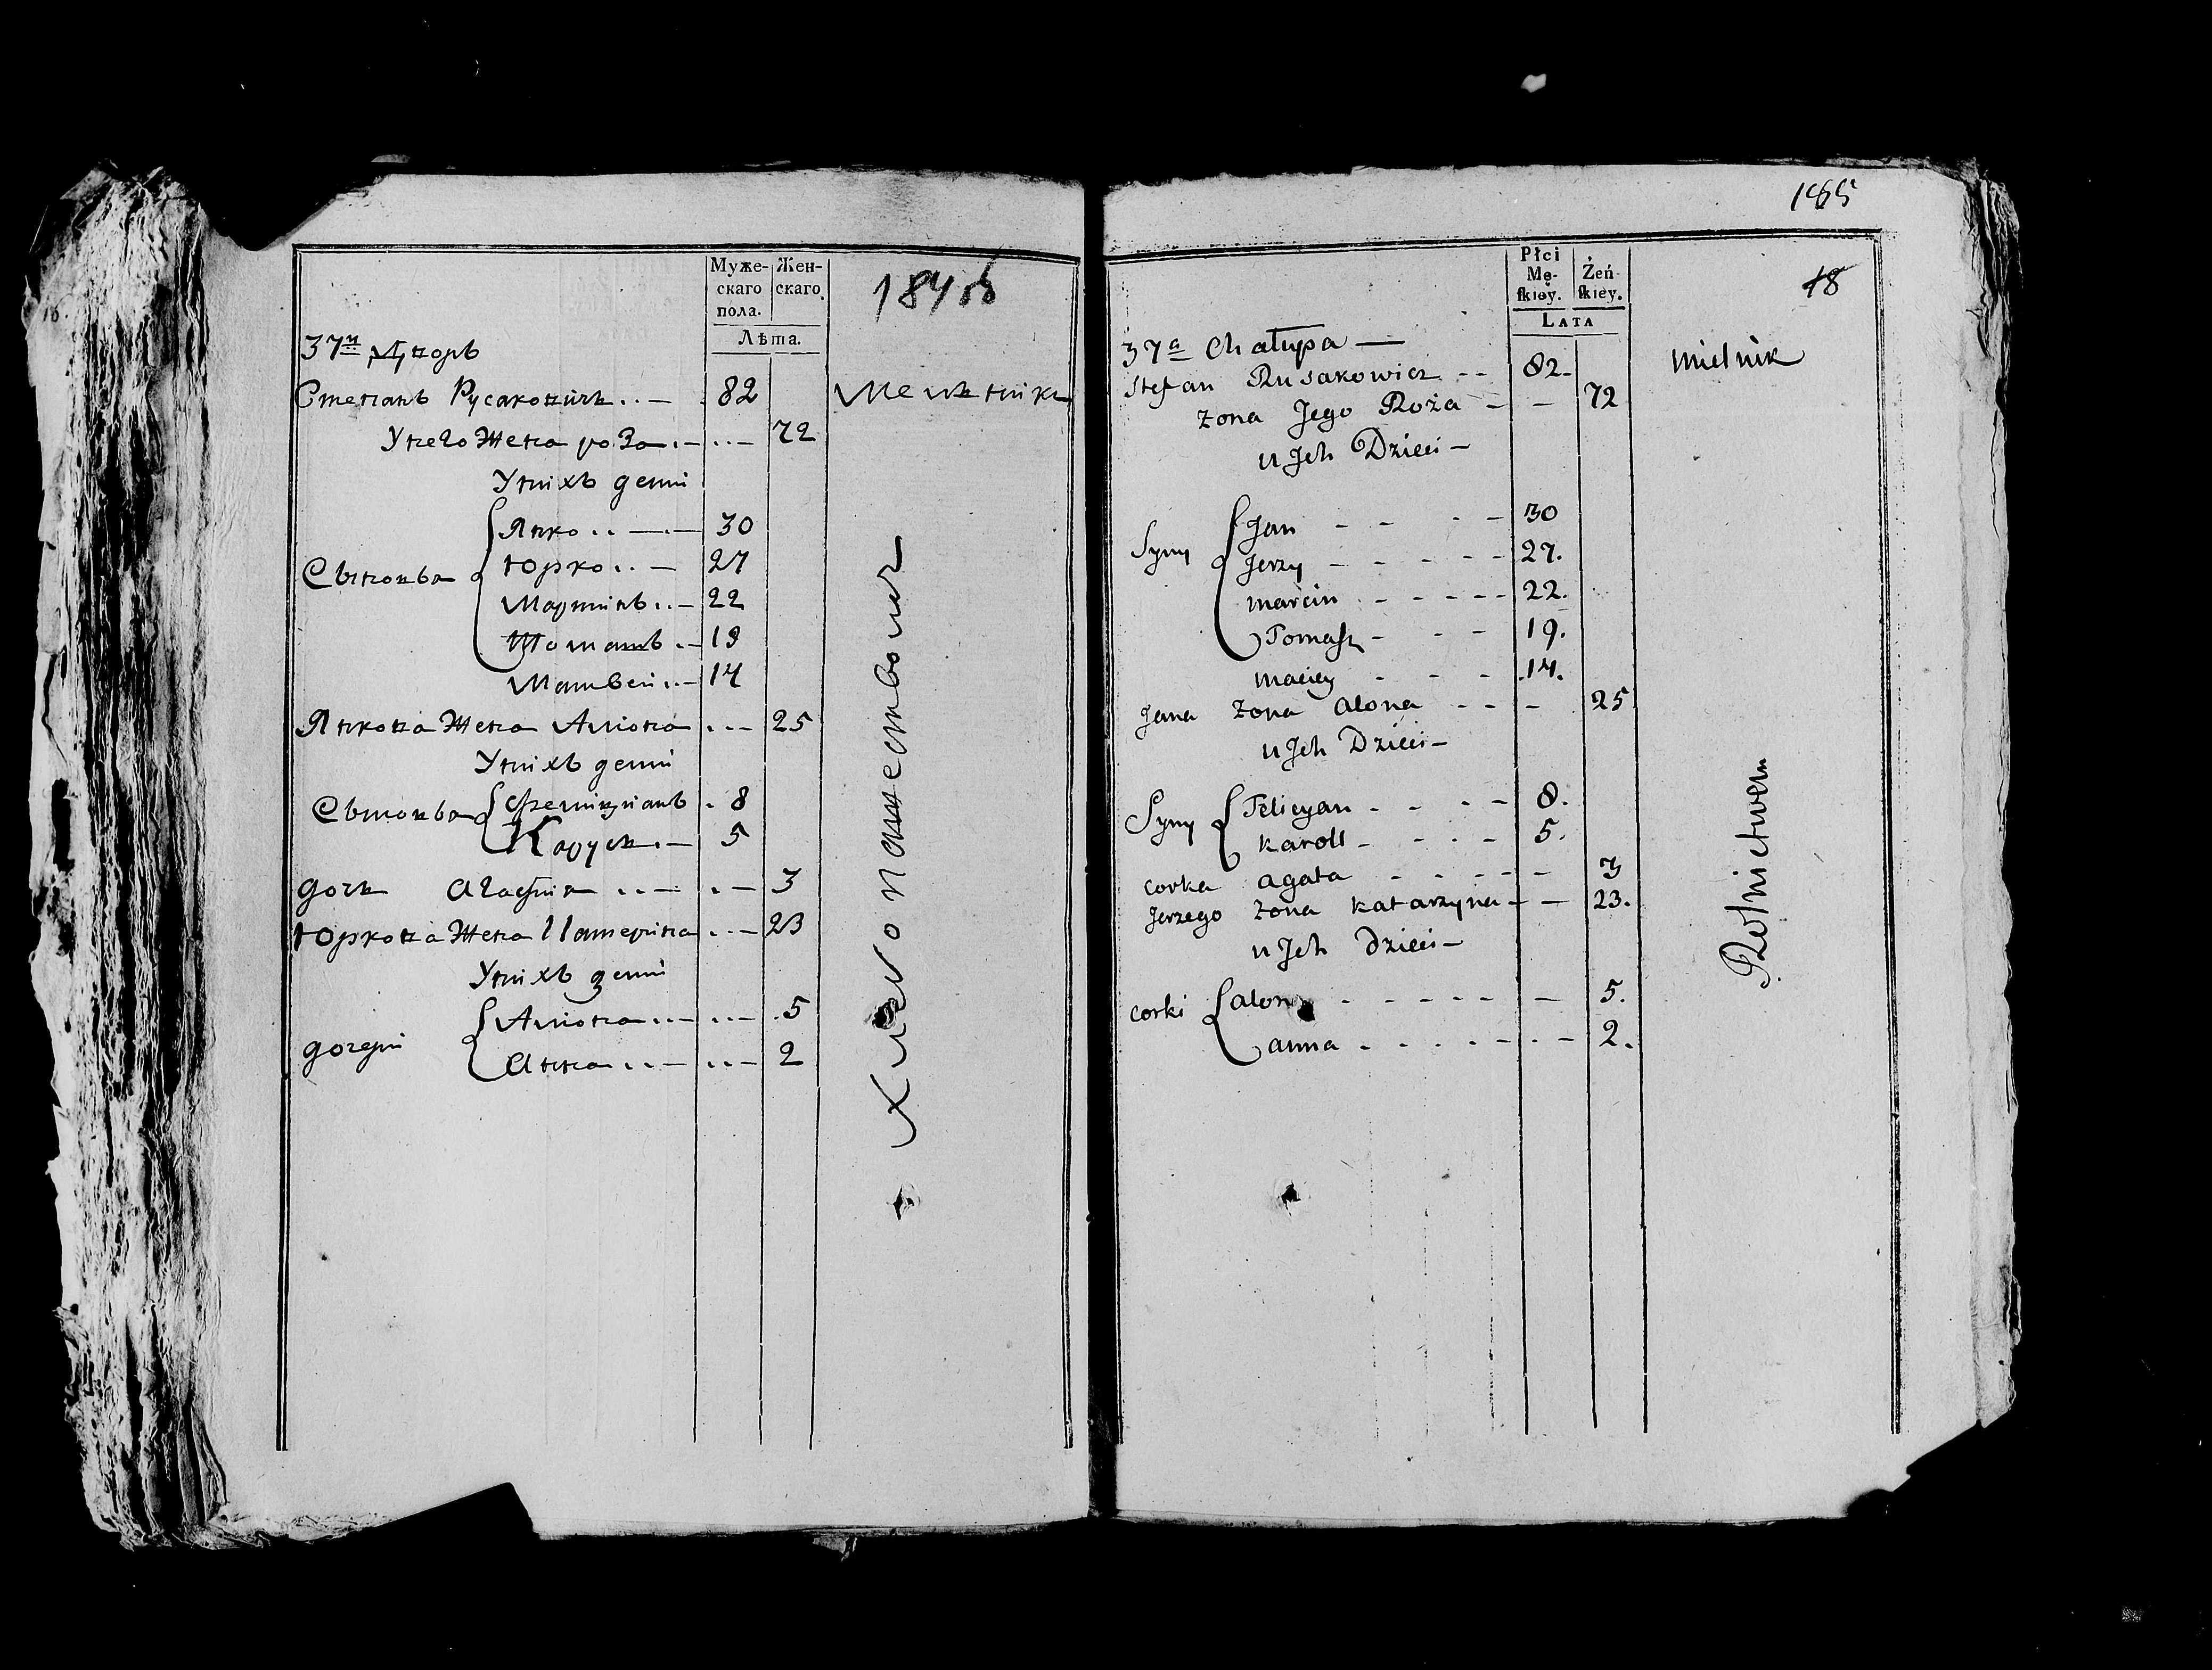 Муже-
скаго
пола.
Жен-
скаго
Лѣта.
37й Дворъ
Степанъ Русаковичь 82 Мельникъ
У него Жена роза 72
У нихъ дети
Сыновья
Янко 30
Юрко 27
Мартинъ 22
Томашъ 19
Матвей 14
Янкова Жена Алiона 25
У нихъ дети
Сыновья
Фелицiанъ 8
Карусь 5
дочь Агафия 3
Юркова Жена Катерина 23
У нихъ дети
дочери
Алiона 5
Анна 2
Хлебопашествомъ
165
18
Płci
Mę-
skiey.
Żeń-
skiey.
LATA
37a Chałupa —
Stefan Rusakowicz 82. Mielnik
Zona Jego Roża 72
u Jch Dzieci —
Syny
Jan 30
Jerzy 27.
Marcin 22.
Tomasz 19.
Maciey 14.
Jana Zona Alona 25
u Jch Dzieci —
Syny
Felicyan 8.
Karoll 5.
Corka Agata 3
Jerzego Zona Katarzyna 23.
u Jch Dzieci —
Corki
Alona 5.
Anna 2.
Rolnictwem